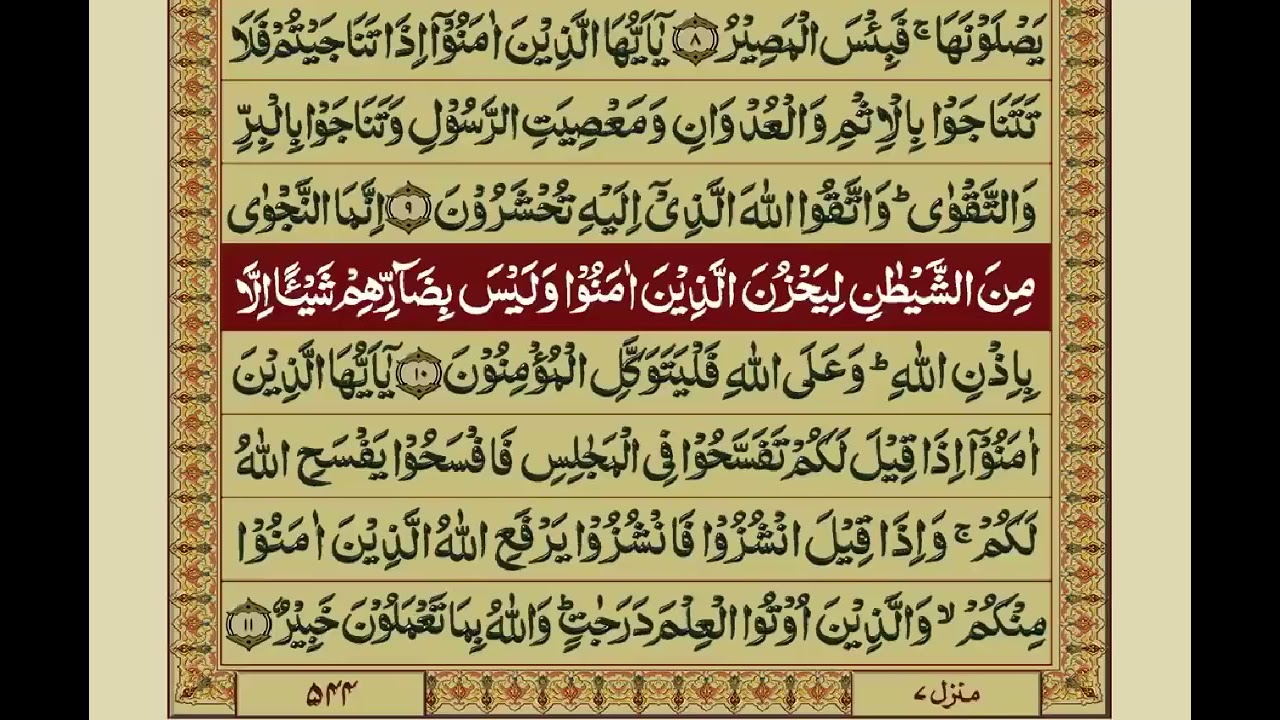 يَصْلَوْنَهَا ۚ فَبِئْسَ الْمَصِيْرُ ۸ يٰۤاَيُّهَا الَّذِيْنَ اٰمَنُوْۤا اِذَا تَنَاجَيْتُمْ فَلَا
تَتَنَاجَوْا بِالْاِثْمِ وَالْعُدْوَانِ وَمَعْصِيَتِ الرَّسُوْلِ وَتَنَاجَوْا بِالْبِرِّ
وَالتَّقْوٰى ؕ وَاتَّقُوا اللّٰهَ الَّذِيْۤ اِلَيْهِ تُحْشَرُوْنَ ۹ اِنَّمَا النَّجْوٰى
مِنَ الشَّيْطٰنِ لِيَحْزُنَ الَّذِيْنَ اٰمَنُوْا وَلَيْسَ بِضَآرِّهِمْ شَيْـًٔا اِلَّا
بِاِذْنِ اللّٰهِ ؕ وَعَلَى اللّٰهِ فَلْيَتَوَكَّلِ الْمُؤْمِنُوْنَ ۱۰ يٰۤاَيُّهَا الَّذِيْنَ
اٰمَنُوْۤا اِذَا قِيْلَ لَكُمْ تَفَسَّحُوْا فِي الْمَجٰلِسِ فَافْسَحُوْا يَفْسَحِ اللّٰهُ
لَكُمْ ۚ وَاِذَا قِيْلَ انْشُزُوْا فَانْشُزُوْا يَرْفَعِ اللّٰهُ الَّذِيْنَ اٰمَنُوْا
مِنْكُمْ ۙ وَالَّذِيْنَ اُوْتُوا الْعِلْمَ دَرَجٰتٍ ؕ وَاللّٰهُ بِمَا تَعْمَلُوْنَ خَبِيْرٌ ۱۱
منزل ۷
۵۴۴